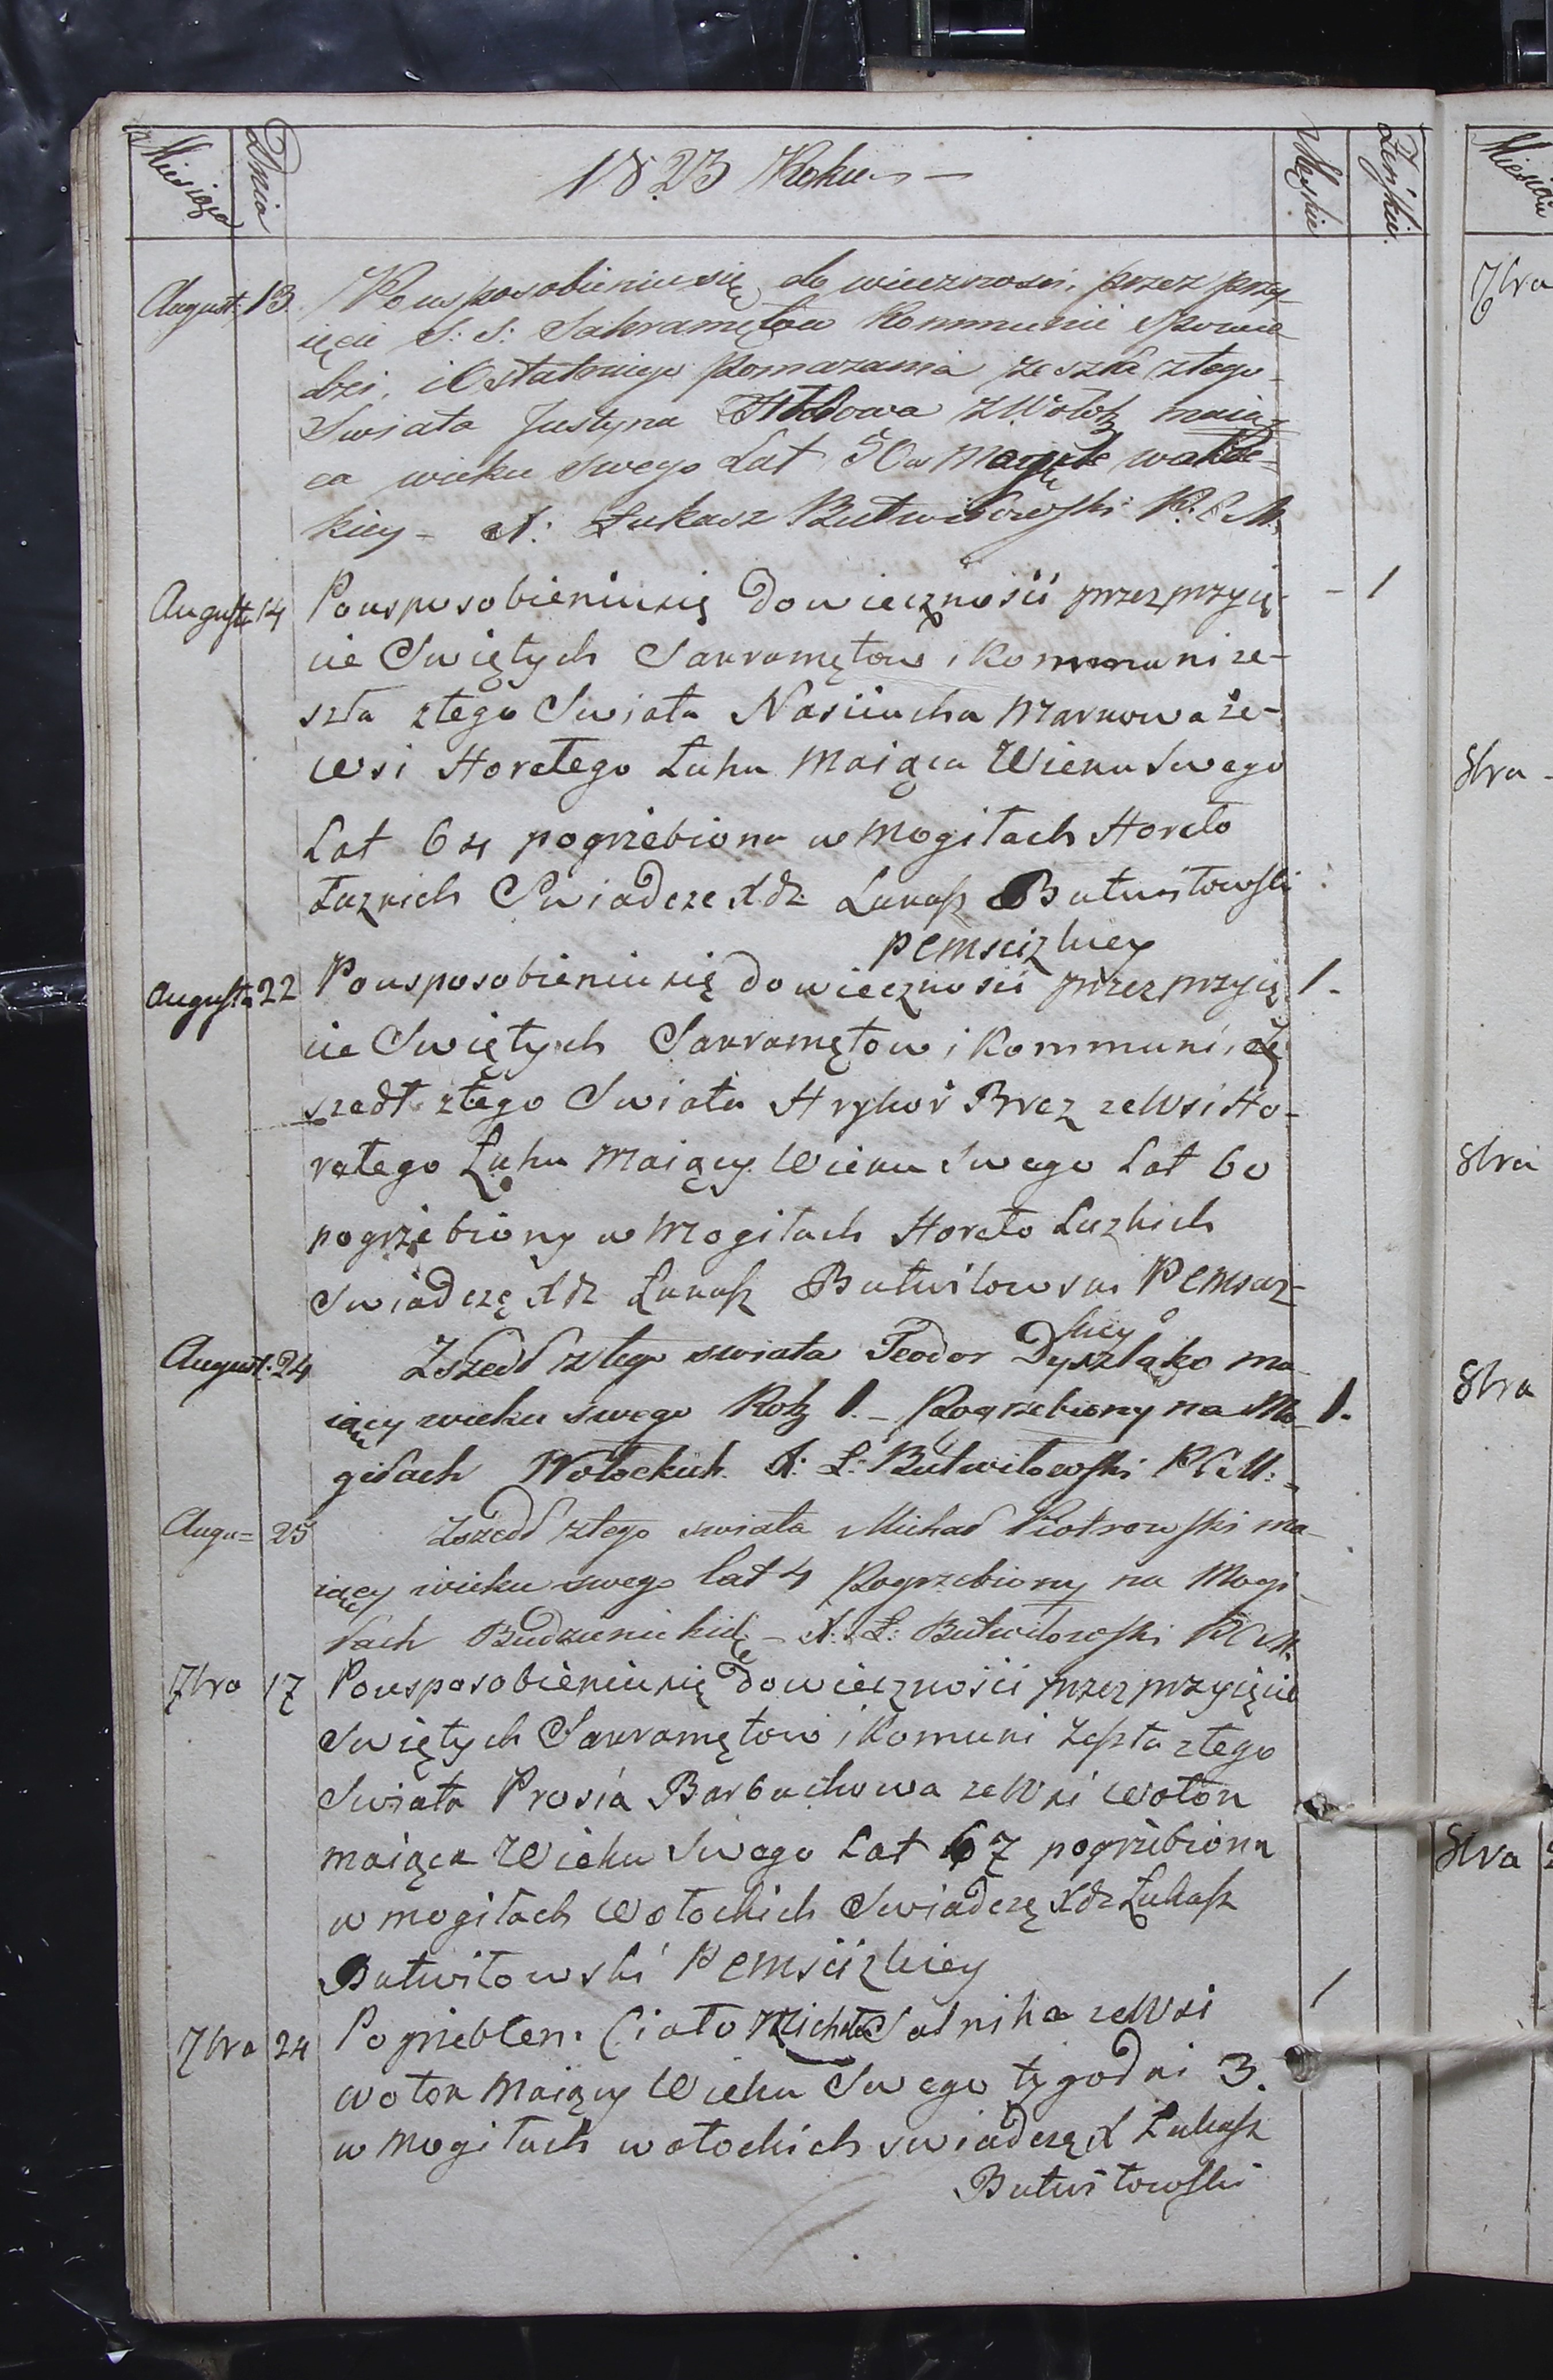 Miesiąca Dnia 1823 Roku Męskie Żeńskie.
August. 13 Po usposobieniu się do wieczności, przez przy
ięcie S: S: Sakramętow Kommunii Spowie
dzi, i Ostatniego Pomazania ze szła z tego
Swiata Justyna z Wołok maią=
ca wieku swego Lat 50 w
kiey - X: Łukasz Butwiłowski P.C.M.
August. 14 Po usposobieniu się do wieczności przez przyię- - 1
cie Swiętych Sakramętow i Kommuni ze-
szła z tego Swiata Nasciucha Markowa ze-
wsi Horełego Łuhu Maiąca Wieku Swego
Lat 64 pogrzebiona w Mogiłach Horeło
Łuzkich Swiadcze Xdz Łukasz Butwiłowski
PCMscizkiey
Augusta 22 Po usposobieniu się do wieczności przez przyię 1.
cie Swiętych Sakramętow i Kommuni, Ze
szedł z tego Swiata Hryhor Brez ze Wsi Ho-
rełego Łuhu Maiący Wieku Swego Lat 60
pogrzebiony w Mogiłach Horeło Łuzkich
Swiadczę Xdz Łukasz Butwiłowski PCMsciz-
kiey
August. 24 Zszedł z tego swiata Teodor Dyszlako ma-
iący wieku swego Rok 1. - Pogrzebiony na Mo- 1.
giłach Wołockich. X: Ł: Butwiłowski PCM:
Augu= 25 Zszedł z tego swiata Michał Piotrowski ma-
iący wieku swego lat 4 Pogrzebiony na Mogi
łach - X: Ł: Butwiłowski PCM.
7bra 17 Po usposobieniu się do wieczności przez przyięcie
Swiętych Sakramętow i Komuni Zeszła z tego
Swiata Prosia Barbuchowa ze Wsi Wołok
maiąca Wieku Swego Lat 67 pogrzebiona
w mogiłach Wołockich Swiadczę Xdz Łukasz
Butwiłowski PCMscizkiey
7bra 24 Pogrzebłem Ciało Michała Salnika ze Wsi 1
Wołok Maiący Wieku Swego tygodni 3.
w Mogiłach wołockich swiadczę X Łukasz
Butwiłowski
Miesiąca
7bra
8bra -
8bra
8bra
8bra